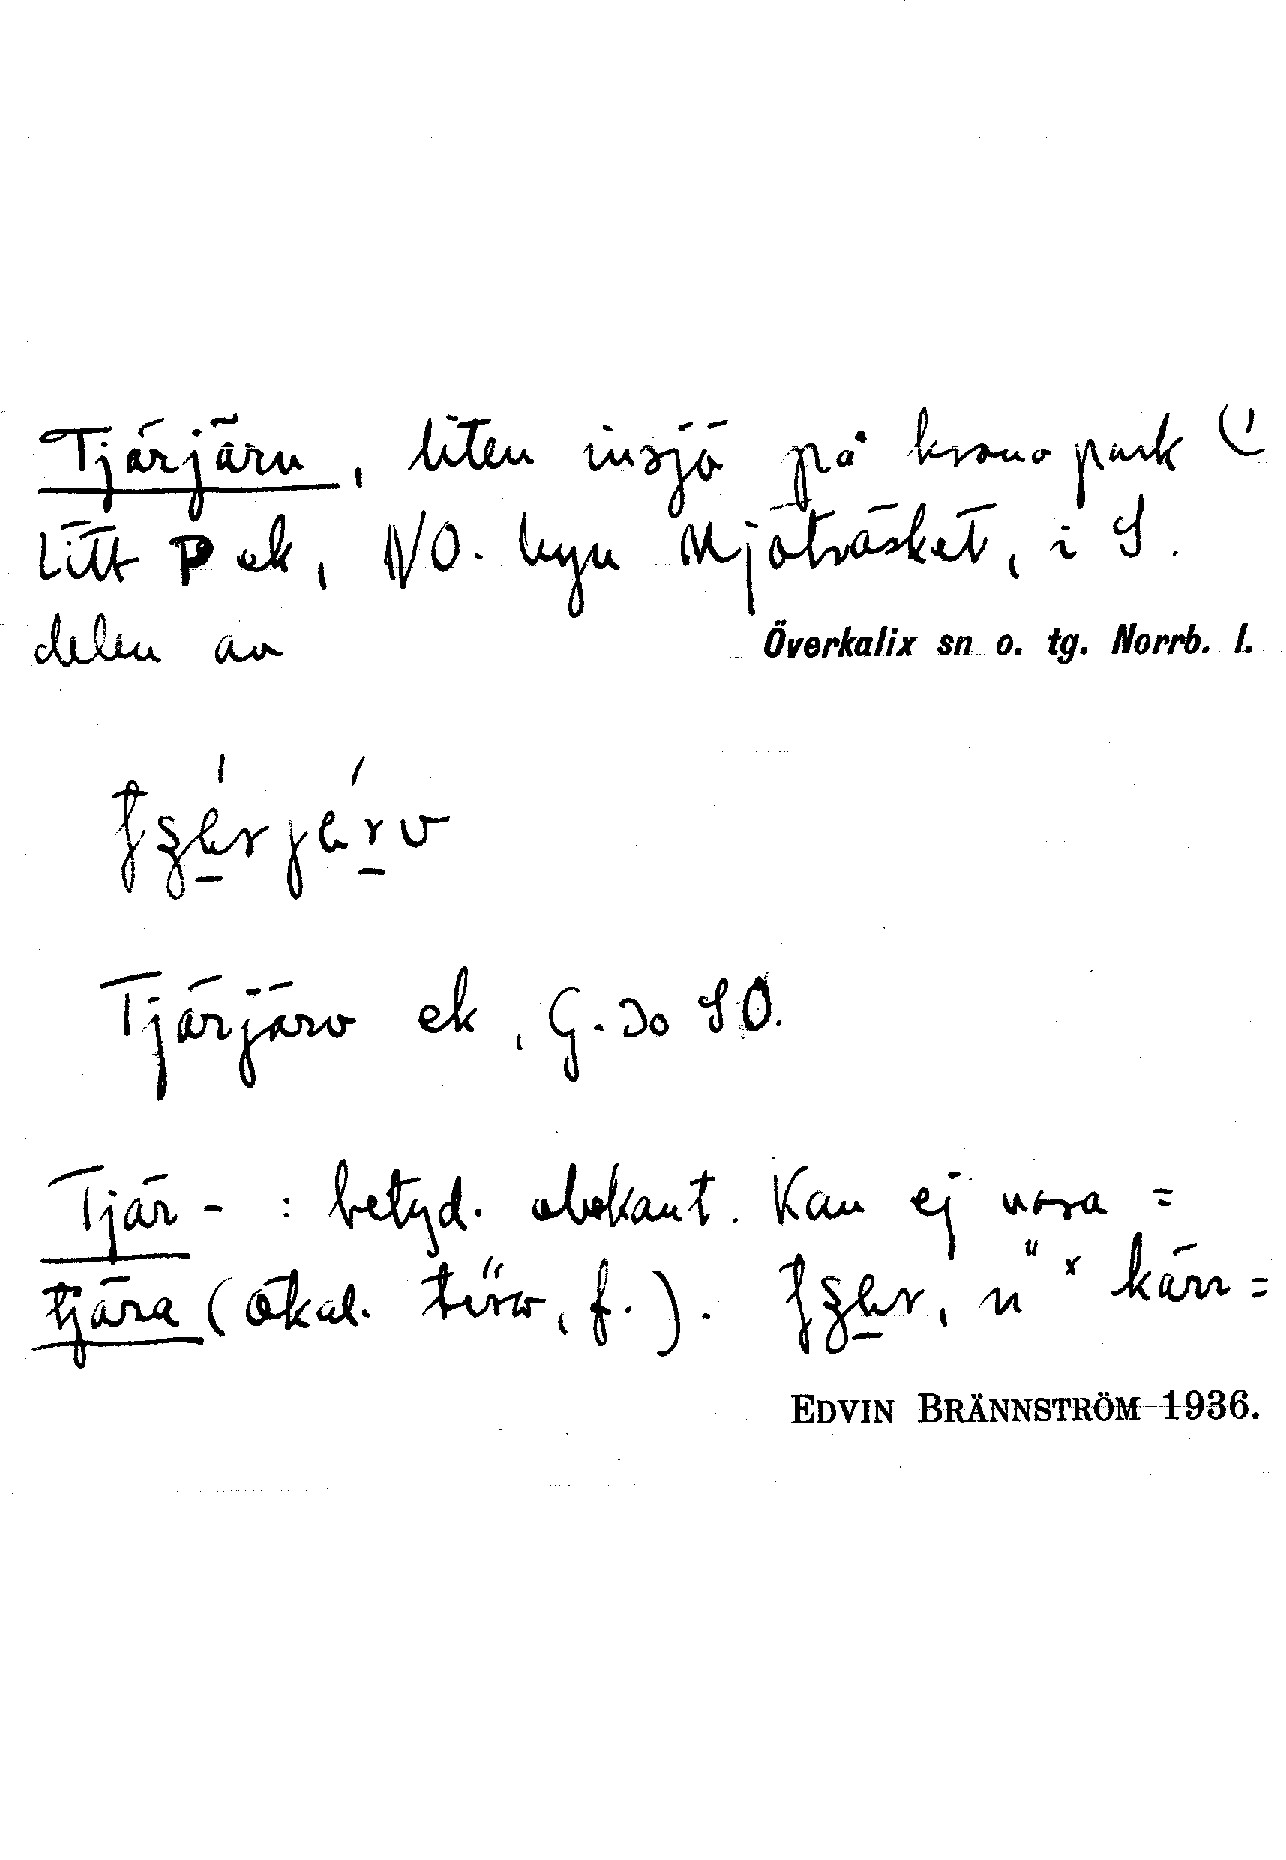 Tjärjärv, liten insjö på kronopark (
Litt P ek, NO. byn Mjöträsket, i S.
delen av Överkalix sn o. tg. Norrb. l.
Tjärjärv ek, G.30 SO.
Tjär- : betyd. obekant. Kan ej vara =
tjära (Ökal. , f.). , n " x kärr =
EDVIN BRÄNNSTRÖM 1936.